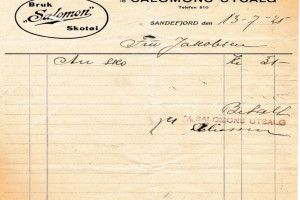 Bruk
"Salomon"
Skotøi
A/S SALOMONS UTSALG
Telefon 810
SANDEFJORD den 13-7-25
Fru Jakobsen
An sko Kr
Betalt
A/S SALOMONS UTSALG